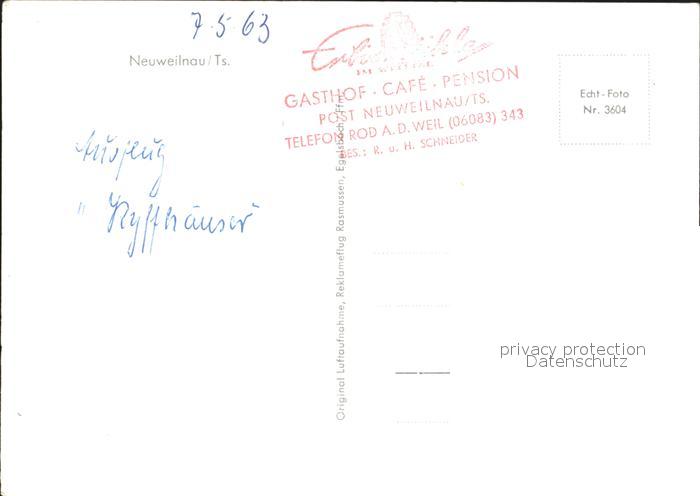 7.5.63
Neuweilnau/Ts.
IM WEILTAL
GASTHOF · CAFÉ · PENSION
POST NEUWEILNAU/TS.
TELEFON ROD A.D. WEIL (06083) 343
BES.: R. u. H. SCHNEIDER
Echt-Foto
Nr. 3604
Ausflug
"Kyffhäuser"
Original Luftaufnahme, Reklameflug Rasmussen, Egelsbach/Ffm.
privacy protection
Datenschutz